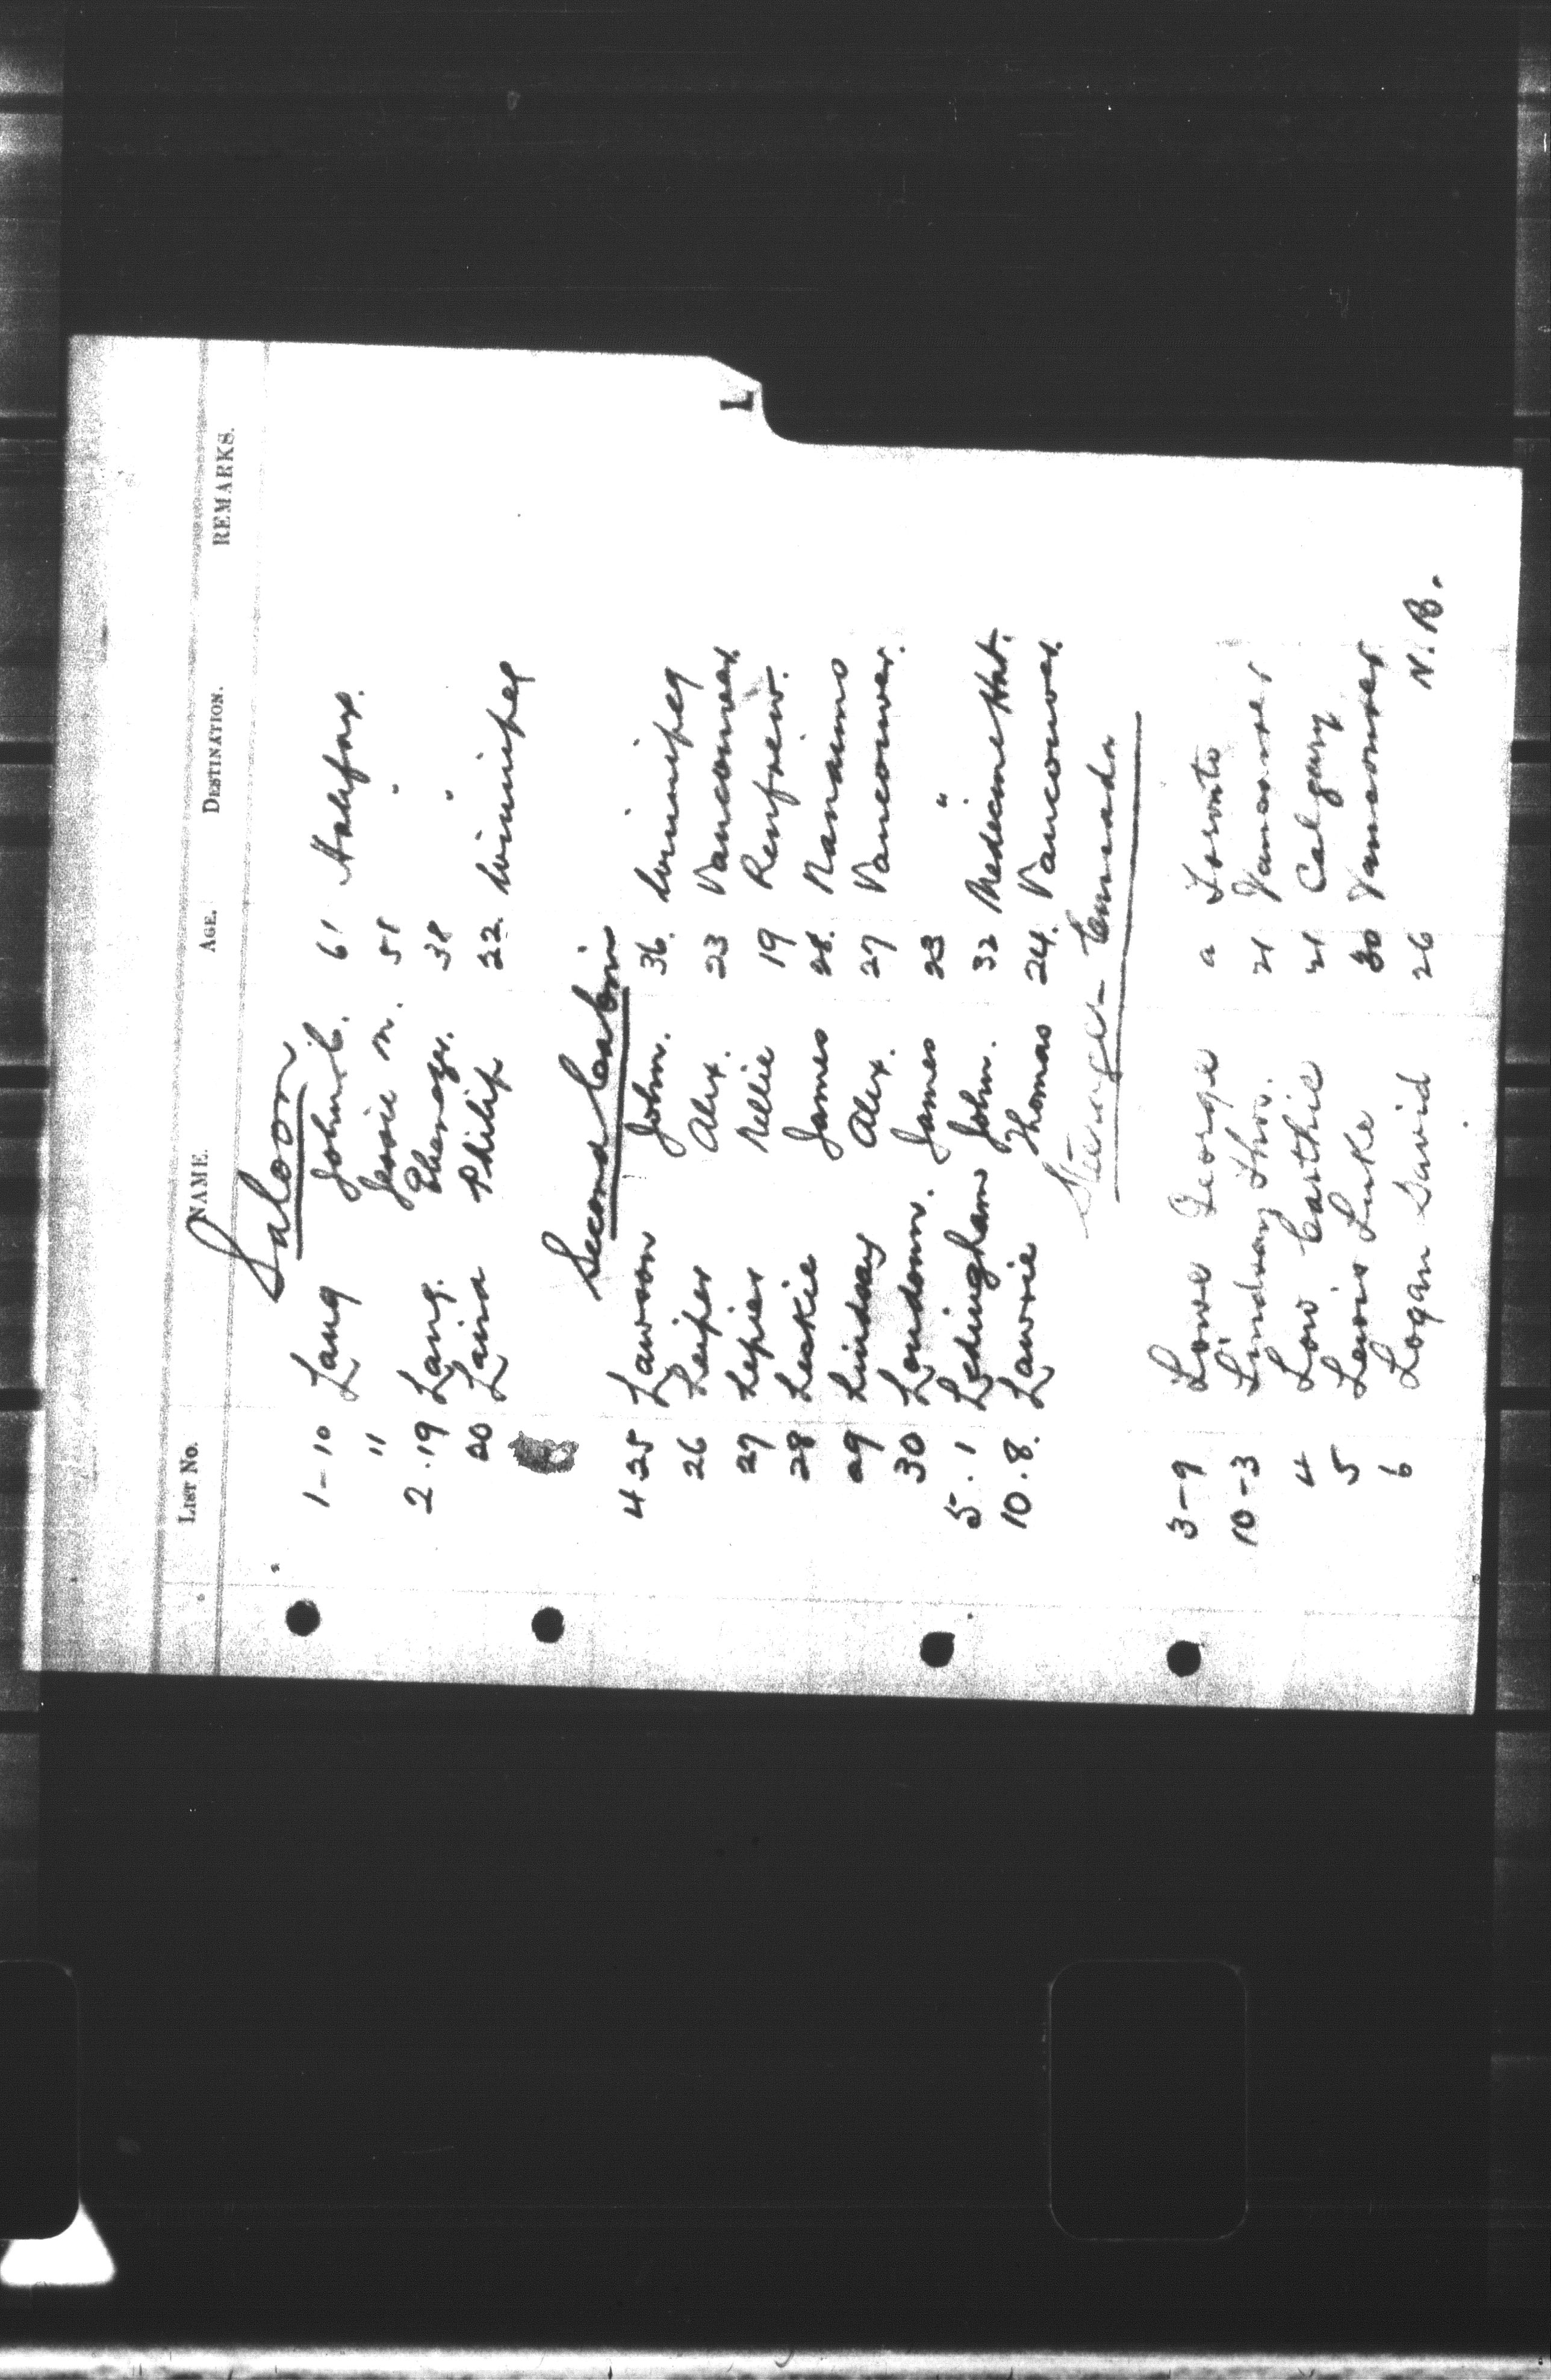 L
LIST No. NAME. AGE. DESTINATION. REMARKS.
Saloon
1-10 Lang John C. 61 Halifax.
11 Jessie M. 58 "
2.19 Lang. Ebenezr. 38 "
20 Laird Philip 22. Winnipeg
Second Cabin
4 25 Lawson John. 36. Winnipeg
26 Leiper Alex. 23 Vancouver.
27 Lepier Nellie 19 Renfrew.
28 Leckie James 28. Nanaimo
29 Lindsay Alex. 27 Vancouver.
30 Loudown. James 23 "
5.1 Ledingham John. 32 Medicine Hat.
10.8. Lawrie Thomas 24. Vancouver.
Steerage - Canada
3-9 Lowe George a Toronto
10-3 Lindsay Thos. 21 Vancouver
4 Low Carthie 21 Calgary
5 Lewis Luke 30 Vancouver
6 Logan David 26 N.B.